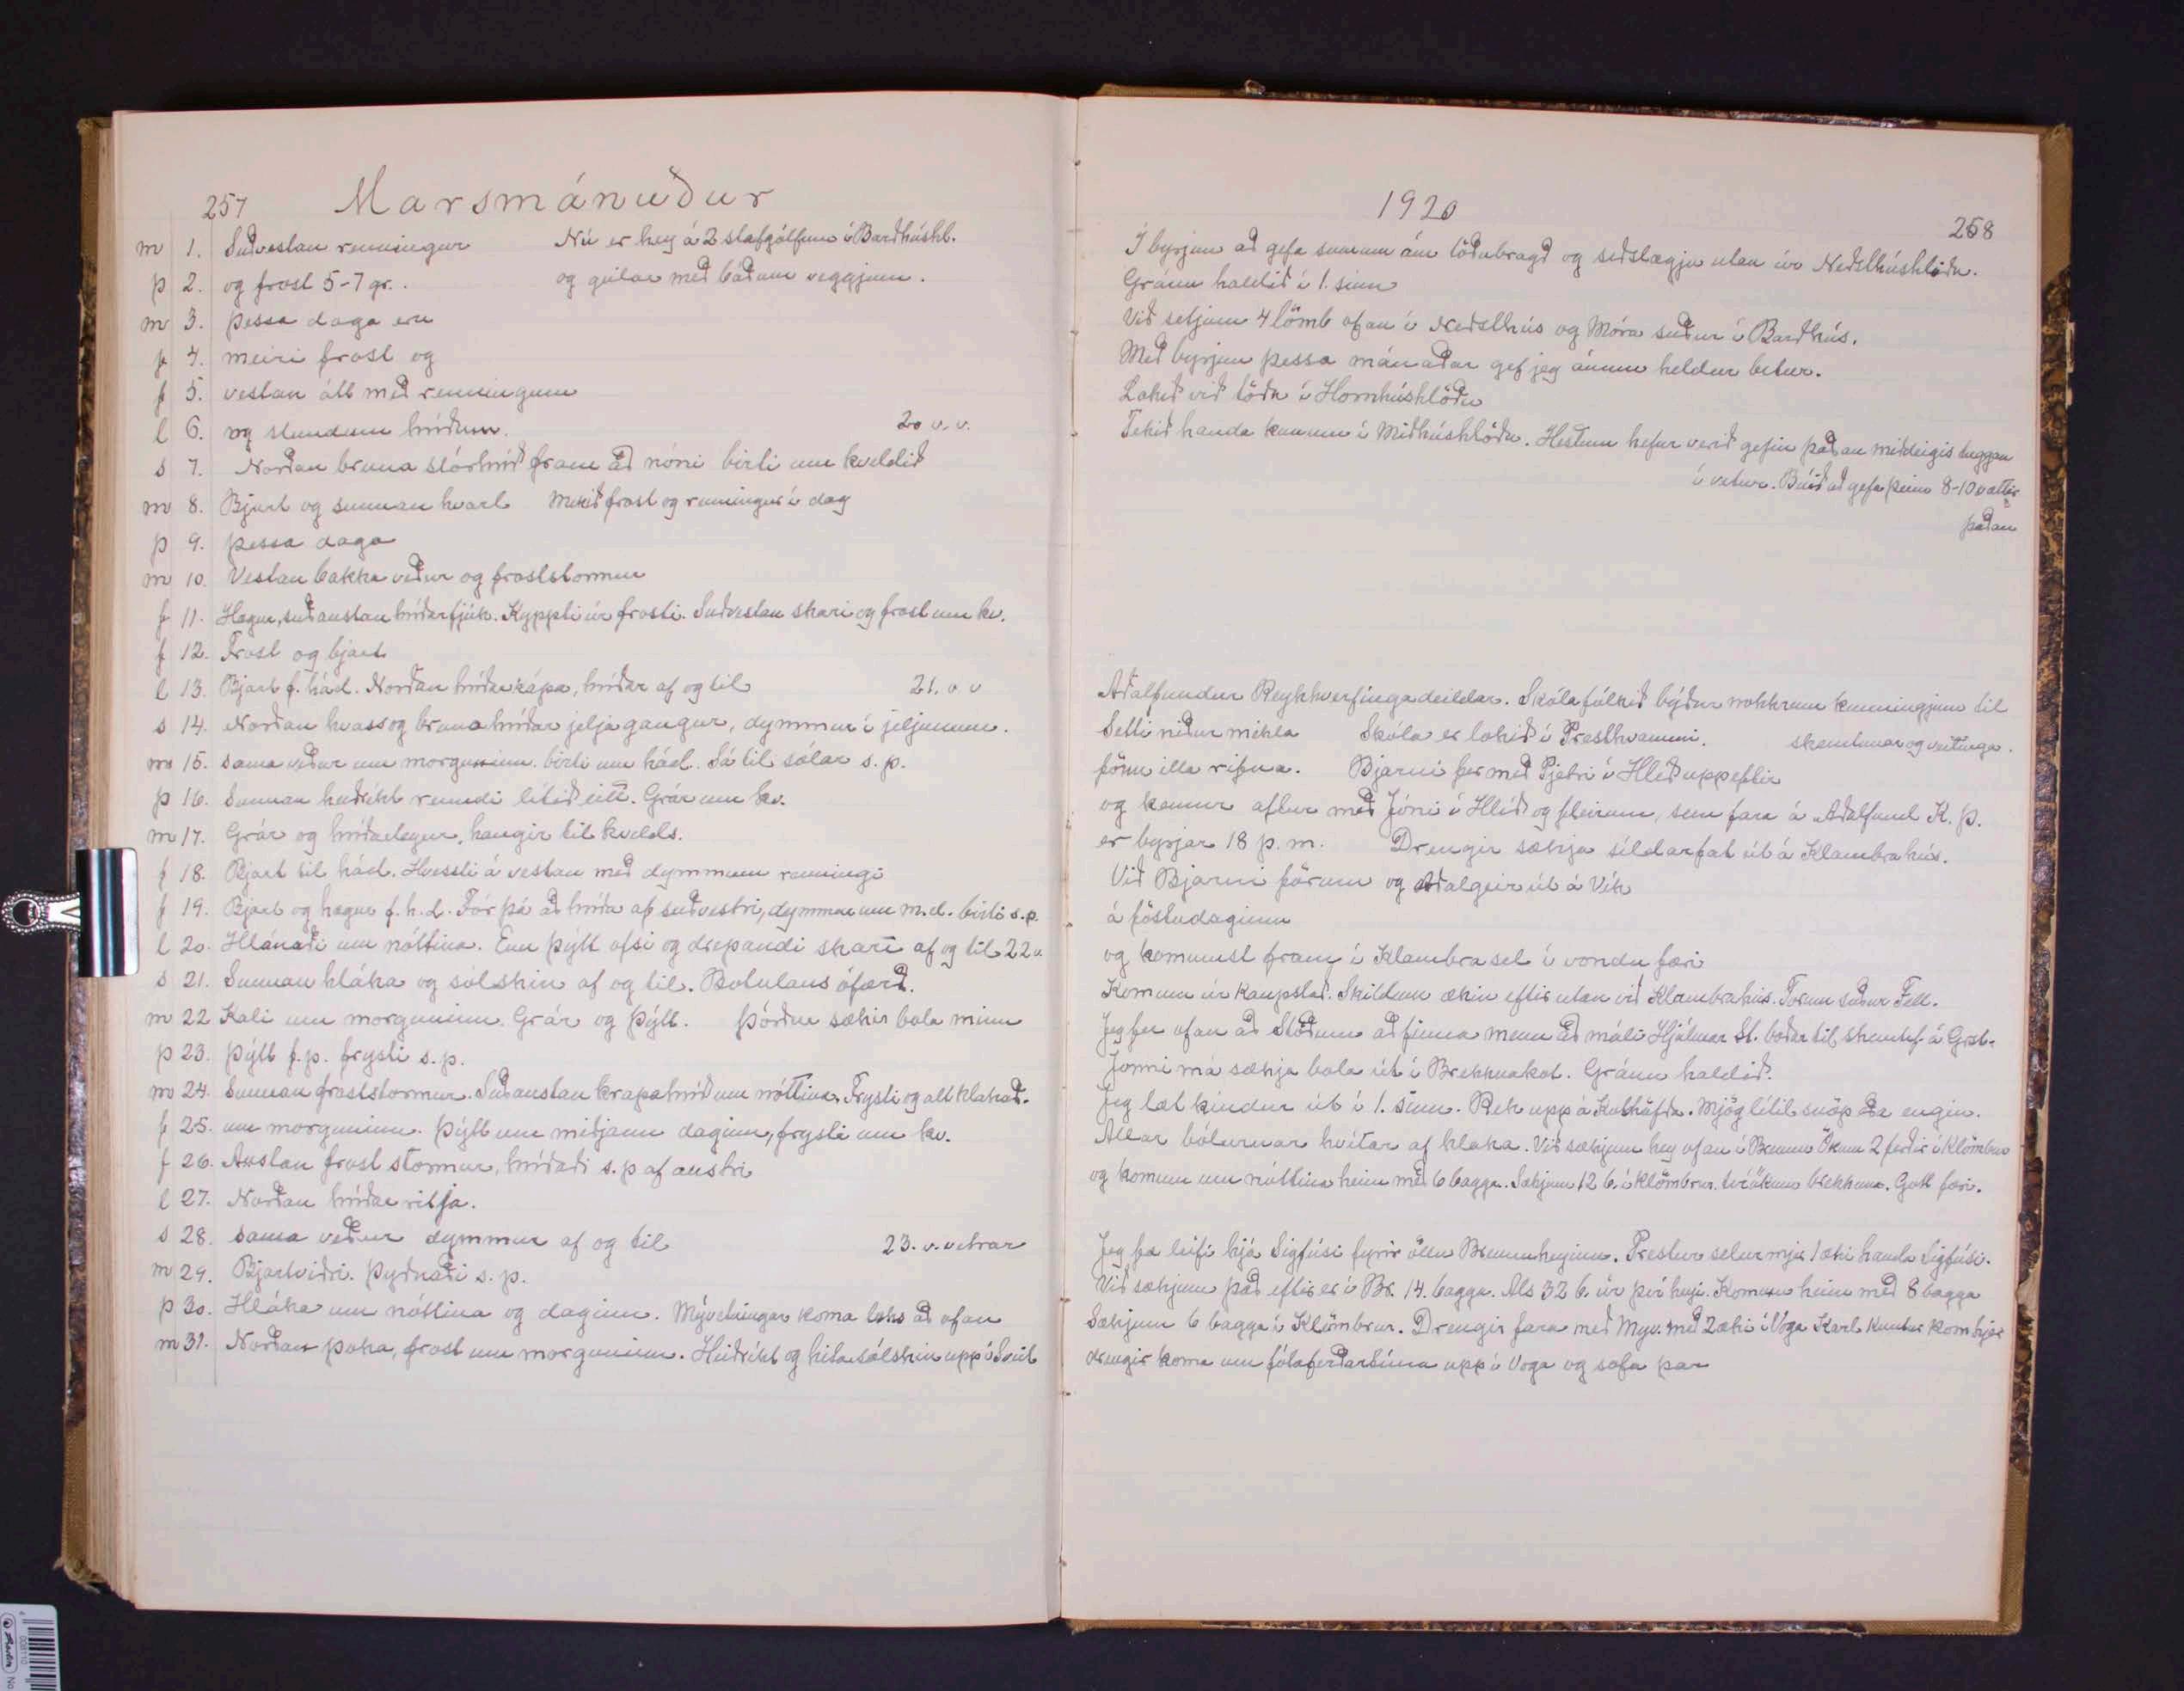 257 Marsmánuður
m 1. Suðvestan renningur Nú er hey á 2 stafgólfum í Barðhúshl.
þ 2. og frost 5-7 gr. . og geilar með báðum veggjum.
m 3. þessa daga eru
f 4. meiri frost og
f 5. vestan átt með renningum
l 6. og stundum hríðum. 20 v. v.
s 7. Norðan bruna stórhríð fram að nóni birti um kveldið
m 8. Bjart og sunnan hvast Mikið frost og renningur í dag
þ 9. þessa daga
m 10. Vestan bakka veður og froststormur
f 11. Hægur, suðaustan hríðarfjúk. Kyppti úr frosti. Suðvestan skari og frost um kv.
f 12. Frost og bjart
l 13. Bjart f. hád. Norðan hríðar kápa, hríðar af og til 21. v. v
s 14. Norðan hvass og bruna hríðar jeljagangur, dymmur í jeljunum.
m 15. sama veður um morguninn. birti um hád. Sá til sólar s. p.
þ 16. Sunnan heiðríkt renndi lítið eitt. Grár um kv.
m 17. Grár og hríðarlegur, hangir til kvelds.
f 18. Bjart til hád. Hvessti á vestan með dymmum renningi
f 19. Bjart og hægur f. h. d. Fór þá að hríða af suðvestri, dymmur um m.d. birti s.p.
l 20. Hlánaði um nóttina. Enn þýtt ofsi og drepandi skari af og til 22 v
s 21. Sunnan hláka og sólskin af og til. Botnlaus ófærð.
m 22 Kali um morguninn. Grár og þýtt. Þórður sækir bola minn
þ 23. þýtt f. p. frysti s. p.
m 24. Sunnan froststormur. Suðaustan krapahríð um nóttina. Frysti og alt klakað.
f 25. um morguninn. Þýtt um miðjann daginn, frysti um kv.
f 26. Austan frost stormur, hríðaði s. p af austri
l 27. Norðan hríðar ritja.
s 28. sama veður dymmur af og til 23. v. vetrar
m 29. Bjartviðri. Þyðnaði s. p.
þ 30. Hláka um nóttina og daginn. Mývetningar koma loks að ofan
m 31. Norðan þoka, frost um morguninn. Heiðríkt og hita sólskin upp í Sveit
1920 258
Í byrjun að gefa sumum ám töðubragð og siðslægju utan úr Neðsthúshlöðu.
Gránu haldið í 1. sinn
Við setjum 4 lömb ofan í Neðsthús og Móra suður í Barðhús.
Með byrjun þessa mánaðar gef jeg ánum heldur betur.
Lokið við töðu í Hornhúshlöðu
Tekið handa kunum í Miðhúshlöðu. Hestum hefur verið gefin þaðan miðdeigis tuggan
í vetur. Búið að gefa þeim 8-10 vættir
þaðan
Aðalfundur Reykhverfingadeildar. Skólafólkið býður nokkrum kunningjum til
Setti niður mikla Skóla er lokið í Presthvammi. skemtunar og veitinga.
fönn illa rifna. Bjarni fer með Pjetri í Hlíð uppeftir
og kemur aftur með Jóni í Hlíð og fleirum, sem fara á Aðalfund K. Þ.
er byrjar 18 þ. m. Drengir sækja síldarfat út á Klambrahús.
Við Bjarni förum og Aðalgeir út á Vík
á föstudaginn
og komumst fram í Klambrasel í vondu færi
Komum úr kaupstað. Skildum ækin eftir utan við Klambrahús. Forum suður Fell.
Jeg fer ofan að Stöðum að finna menn að máli Hjálmar St. boðar til skemtif á Grst.
Jonni má sækja bola út í Brekknakot. Gránu haldið.
Jeg læt kindur út í 1. sinn. Rek upp á Kolhöfða. Mjög lítil snöp eða engin.
Allar bólurnar hvítar af klaka. Við sækjum hey ofan í Brunn Ökum 2 ferðir í Klömbrur
og komum um nóttina heim með 6 bagga. Sækjum 12 b. í Klömbrur. tvíökum brekkuna. Gott færi.
Jeg fæ leifi hjá Sigfúsi fyrir öllu Brunnheyinu. Prestur selur mjer 1 æki handa Sigfúsi.
Við sækjum það eftir er í Br. 14. bagga. Als 32 b. úr því heyi. Komum heim með 8 bagga
Sækjum 6 bagga í Klömbrur. Drengir fara með Myv. með 2 æki í Voga Karl kom hjer
drengir koma um fótaferðartíma upp í Voga og sofa þar